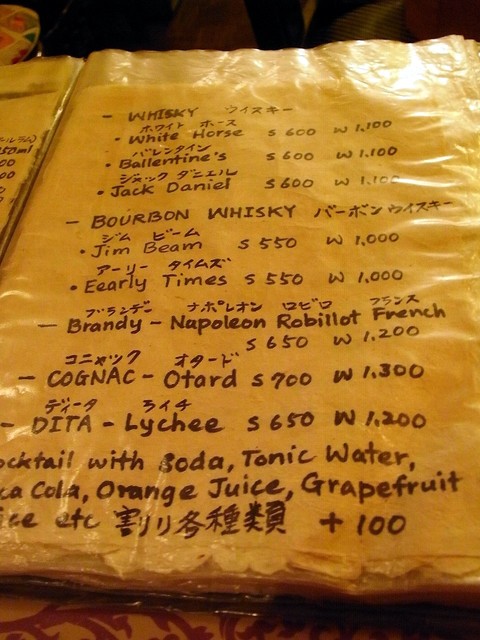 ルラム)
50ml
00
00
0
- WHISKY ウイスキー
ホワイト ホース
• White Horse S 600 W 1.100
バレンタイン
• Ballentine's S 600 W 1.100
ジャック ダニエル
• Jack Daniel S 600 W 1.100
- BOURBON WHISKY バーボンウイスキー
ジム ビーム
• Jim Beam S 550 W 1,000
アーリー タイムズ
• Eearly Times S 550 W 1,000
ブランデー ナポレオン ロビロ フランス
- Brandy - Napoleon Robillot French
S 650 W 1.200
コニャック オタード
- COGNAC - Otard S 700 W 1,300
ディータ ライチ
- DITA - Lychee S 650 W 1,200
ocktail with Soda, Tonic Water,
ca Cola, Orange Juice, Grapefruit
ice etc 割リ各種類 + 100